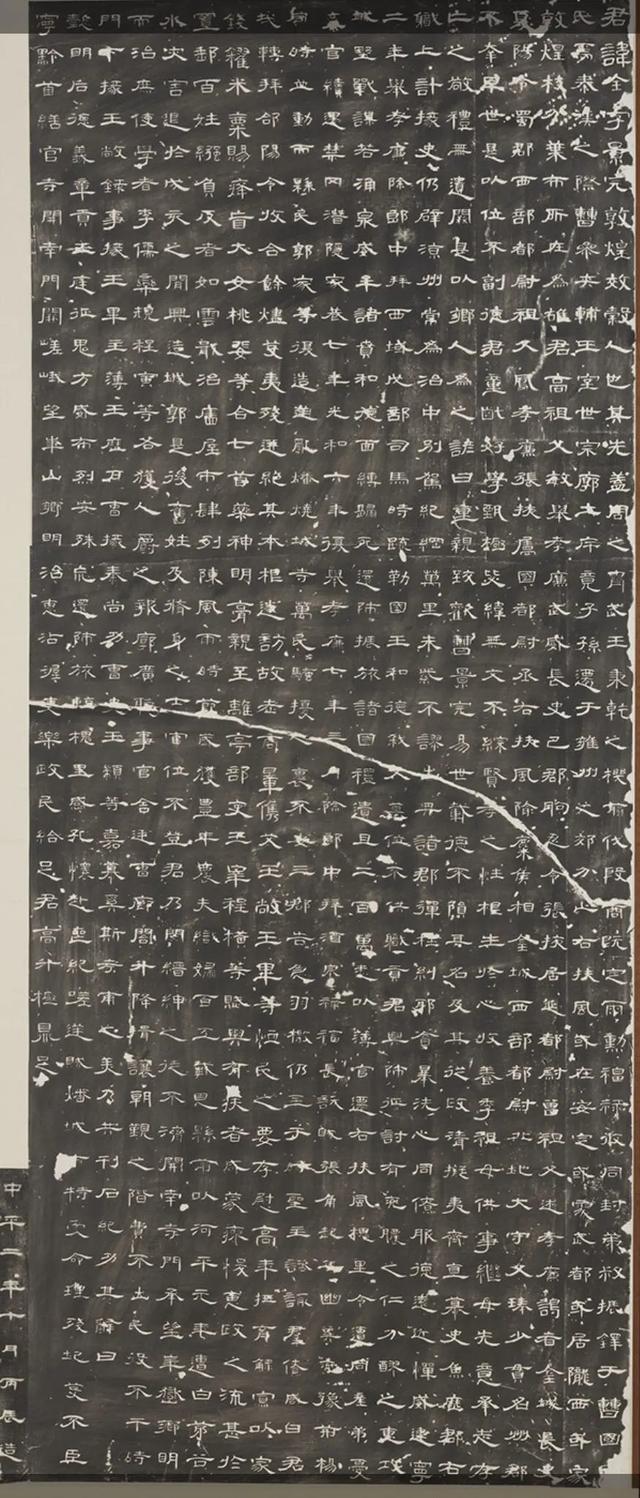 君諱全字景完敦煌效穀人也其先蓋周之冑武王秉乾之機翦伐殷商既定爾勳福祿攸同封弟叔振鐸于曹國
氏焉秦漢之際曹參夾輔王室世宗廓土斥竟子孫遷于雍州之郊分止右扶風或在安定或處武都或居隴西或家
敦煌枝分葉布所在為雄君高祖父敏舉孝廉武威長史巴郡朐忍令張掖居延都尉曾祖父述孝廉謁者金城長史
夏陽令蜀郡西部都尉祖父鳳孝廉張掖屬國都尉丞右扶風隃麋侯相金城西部都尉北地大守父琫少貫名州郡
不幸早世是以位不副德君童齔好學甄極毖緯無文不綜賢孝之性根生於心收養季祖母供事繼母先意承志存
亡之敬禮無遺闕是以鄉人為之諺曰重親致歡曹景完易世載德不隕其名及其從政清擬夷齊直慕史魚歷郡右
職上計掾史仍辟涼州常為治中別駕紀綱萬里朱紫不謬出典諸郡彈枉糾邪貪暴洗心同僚服德遠近憚威建寧
二年舉孝廉除郎中拜西域戊部司馬時疏勒國王和德弒父篡位不供職貢君興師征討有兗膿之仁分醪之惠攻
城野戰謀若涌泉威牟諸賁和德面縛歸死還師振旅諸國禮遺且二百萬悉以簿官遷右扶風槐里令遭同產弟憂
棄官續遇禁冈潛隱家巷七年光和六年復舉孝廉七年三月除郎中拜酒泉祿福長訞賊張角起兵幽冀兗豫荊楊
同時並動而縣民郭家等復造逆亂燔燒城寺萬民騷擾人裹不安三郡告急羽檄仍至于時聖主諮諏群僚咸曰君
哉轉拜郃陽令收合餘燼芟夷殘迸絕其本根遂訪故老商量儁艾王敞王畢等恤民之要存慰高年撫育鰥寡以家
錢糴米粟賜癃盲大女桃婓等合七首藥神明膏親至離亭部吏王宰程橫等賦與有疾者咸蒙瘳悛惠政之流甚於
置郵百姓繈負反者如雲戢治廧屋市肆列陳風雨時節歲獲豐年農夫織婦百工戴恩縣前以河平元年遭白茅谷
水災害退於戌亥之間興造城郭是後舊姓及脩身之士官位不登君乃閔縉紳之徒不濟開南寺門承望華嶽鄉明
而治庶使學者李儒欒規程寅等各獲人爵之報廓廣聽事官舍廷曹廊閤升降揖讓朝覲之階費不出民役不干時
門下掾王敞錄事掾王畢主簿王歷戶曹掾秦尚功曹史王顓等嘉慕奚斯考甫之美乃共刊石紀功其辭曰
懿明后德義章貢王庭征鬼方威布烈安殊巟還師旅臨槐里感孔懷赴喪紀嗟逆賊燔城市特受命理殘圮芟不臣
寧黔首繕官寺開南門闕嵯峨望華山鄉明治惠沾渥吏樂政民給足君高升極鼎足
中平二年十月丙辰造